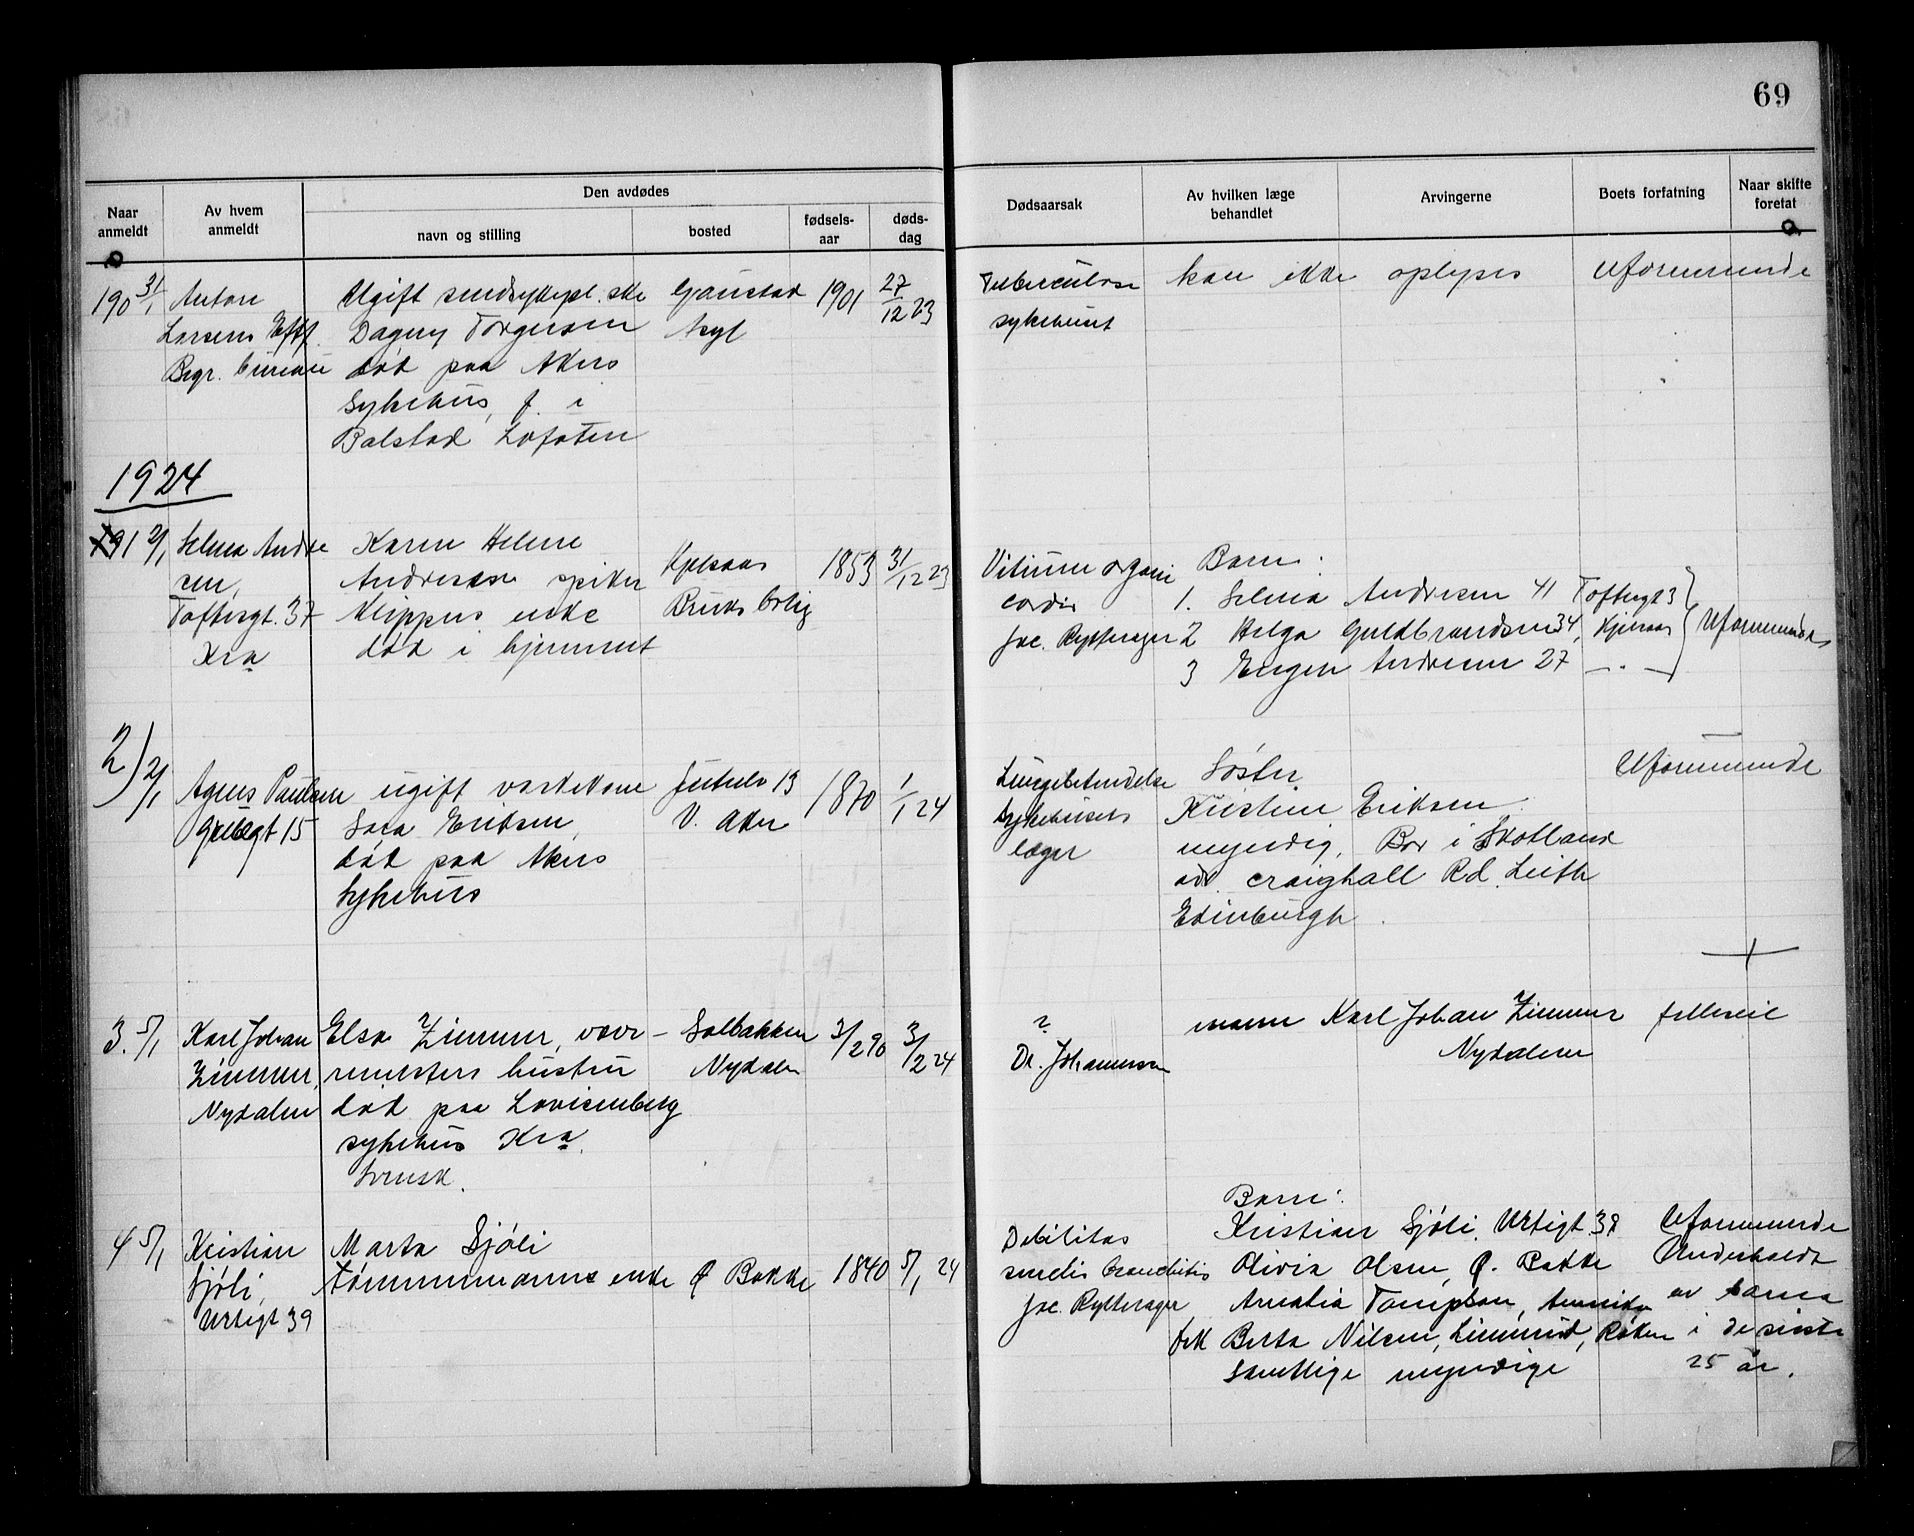 69
Den avdødes
Naar anmeldt
Av hvem anmeldt
navn og stilling
bosted
fødsels-aar
døds-dag
Dødsaarsak
Av hvilken læge behandlet
Arvingerne
Boets forfatning
Naar skifte foretat
190 31/1 Anton Ugift sindssykepl.ske Gaustad 1901 27/12 23 Tuberculose kan ikke oplyses Uformuende
Larsens Eftf. Dagny Torgersen Asyl sykehuset
Begr. bureau død paa Akers
Sykehus, f. i
Balstad Lofoten
1924
1 2/1 Selma Andre Karen Helene Kjelsaas 1853 31/12 23 Vitium organ Barn:
sen, Andresen spiker Bruks bolig cordis 1. Selma Andresen 41 Toftesgt 3
Toftesgt. 37 klippers enke Joc. Rytterager 2 Helga Guldbrandsen 34, Kjelsaas Uformuende
Kra død i hjemmet 3 Eugen Andresen 27 — . —
2) 2/1 Agnes Paulsen ugift vaskekone 13 1870 1/1 24 Lungebetendelse Søster Uformuende
15 Sara Eriksen, V. Aker Sykehusets Kristine Eriksen.
død paa Akers læger myndig. Bor i Skotland
Sykehus adr. craighall Rd. Leith
Edinburgh.
3. 5/1 Karl Johan Elsa Zimmer, væv- Solbakken 3/2 90 3/2 24 ? mann Karl Johan Zimmer felleseie
Zimmer, mesters hustru Nydalen Dr. Johannessen Nydalen
Nydalen død paa Lovisenberg
sykehus Kra.
Svensk.
Barn:
4 5/1 Kristian Marta Sjøli Debilitas Kristian Sjøli, Urtegt. 39 Uformuende
Sjøli, tømmermanns enke Ø Bakke 1840 5/1 24 senilis bronchitis Olivia Olsen, Ø. Bakke Underholdt
Urtegt 39 Joc. Rytterager Amalia Tompson, Amerika av barna
Berta Nilsen, Linnerud, Røken i de siste
samtlige myndige 25 år.